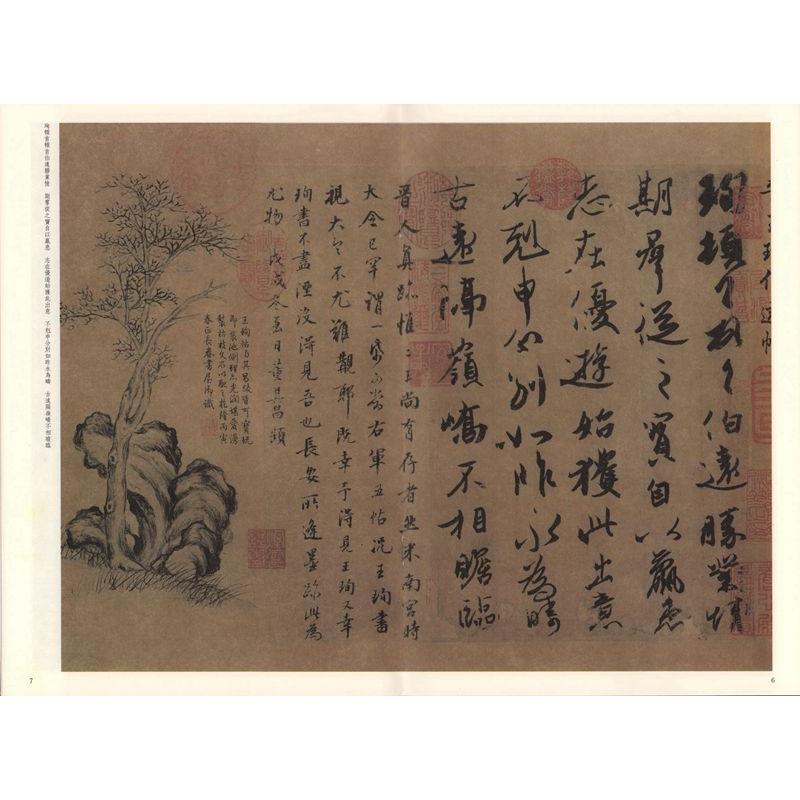 王珣伯遠帖
珣頓首頓首伯遠勝業情
期群從之寶自以羸患
志在優遊始獲此出意
不剋申分別如昨永為疇
古遠隔嶺嶠不相瞻臨
晉人真跡惟二王尚有存者然米南宮時
大令已罕謂一帋可當右軍五帖況王珣書
視大令不尤難覯耶既幸予得見王珣又幸
珣書不盡湮沒得見吾也長安所逢墨跡此為
尤物戊戌冬至日董其昌題
王珣帖與其昌跋皆可寶玩
即裝池側理亦光潤堪愛漫
製枯枝文石以配之乾隆丙寅
春正長春書屋御識
珣頓首頓首伯遠勝業情 期羣從之寶自以羸患 志在優遊始獲此出意 不剋申分別如昨永為疇 古遠隔嶺嶠不相瞻臨
6
7